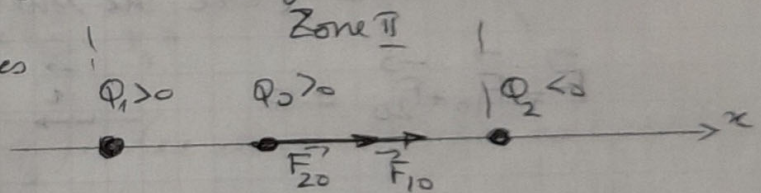 Zone II
es
Q₁>0 Q₀>0 Q₂<0
x
F⃗₂₀ F⃗₁₀